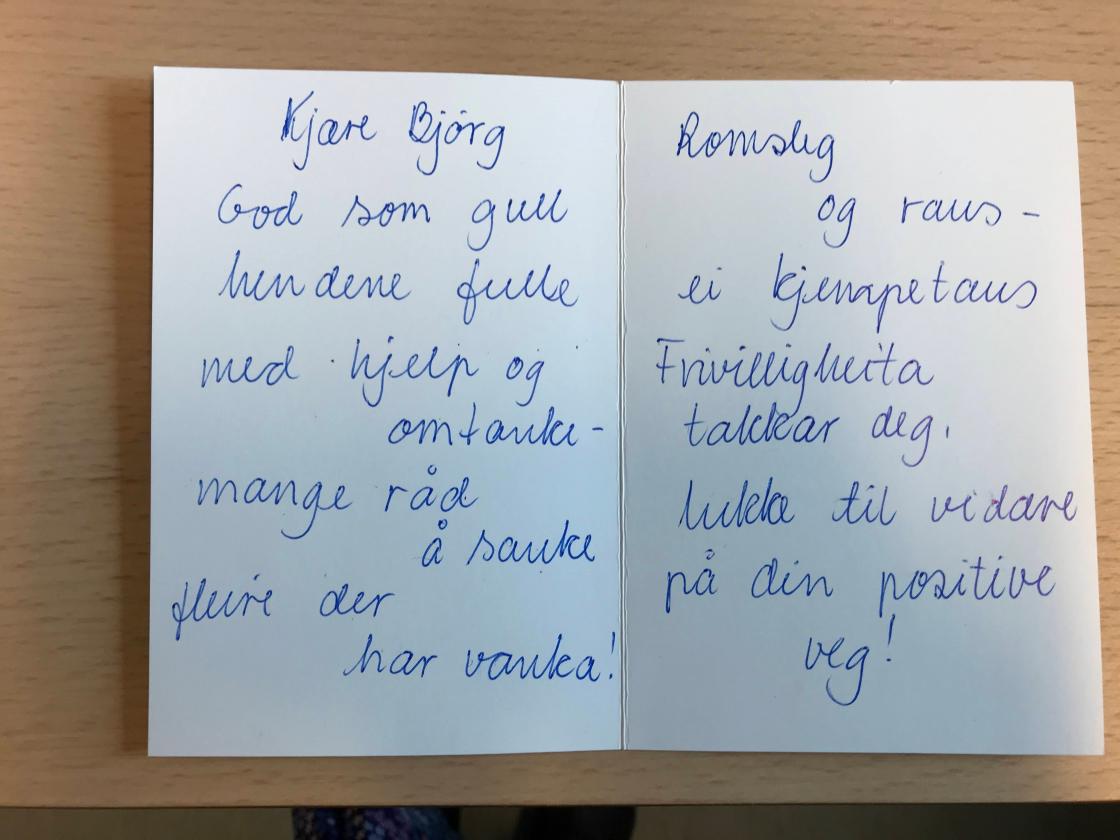 Kjære Bjørg
God som gull
hendene fulle
med hjelp og
omtanke -
mange råd
å sanke
fleire der
har vanka!
Romsleg
og raus -
ei kjempetaus
Frivilligheita
takkar deg.
lukke til vidare
på din positive
veg!